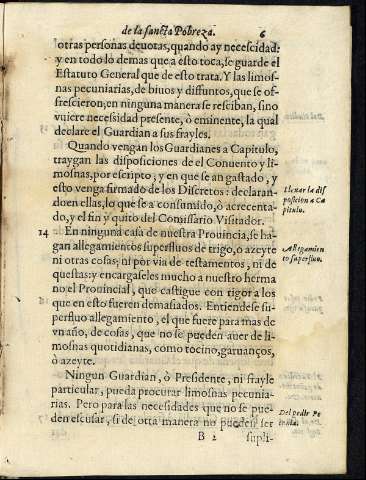 de la sancta Pobreza. 6
otras personas deuotas, quando ay necescidad:
y en todo lo demas que a esto toca, se guarde el
Estatuto General que de esto trata. Y las limos-
nas pecuniarias, de biuos y diffuntos, que se of-
frescieron, en ninguna manera se resciban, sino
vuiere necessidad presente, ò eminente, la qual
declare el Guardian a sus frayles.
Quando vengan los Guardianes a Capitulo,
traygan las disposiciones de el Conuento y li-
mosnas, por escripto, y en que se an gastado, y
esto venga firmado de los Discretos: declaran-
doen ellas, lo que se a consumido, ò acrecenta-
do, y el fin y quito del Comissario Visitador.
Lleuar la dis
posicion a Ca
pitulo.
14 En ninguna casa de nuestra Prouincia, se ha-
gan allegamientos superfluos de trigo, o azeyte
ni otras cosas; ni por via de testamentos, ni de
questas: y encargaseles mucho a nuestro herma
no el Prouincial, que castigue con rigor a los
que en esto fueren demasiados. Entiendese su-
perfluo allegamiento, el que fuere para mas de
vn año, de cosas, que no se pueden auer de li-
mosnas quotidianas, como tocino, garuanços,
ò azeyte.
Allegamien
to superfluo.
Ningun Guardian, ò Presidente, ni frayle
particular, pueda procurar limosnas pecunia-
rias. Pero para las necesidades que no se pue-
den escusar, si de otra manera no pueden ser
Del pedir Pe
cunia.
B 2 supli-